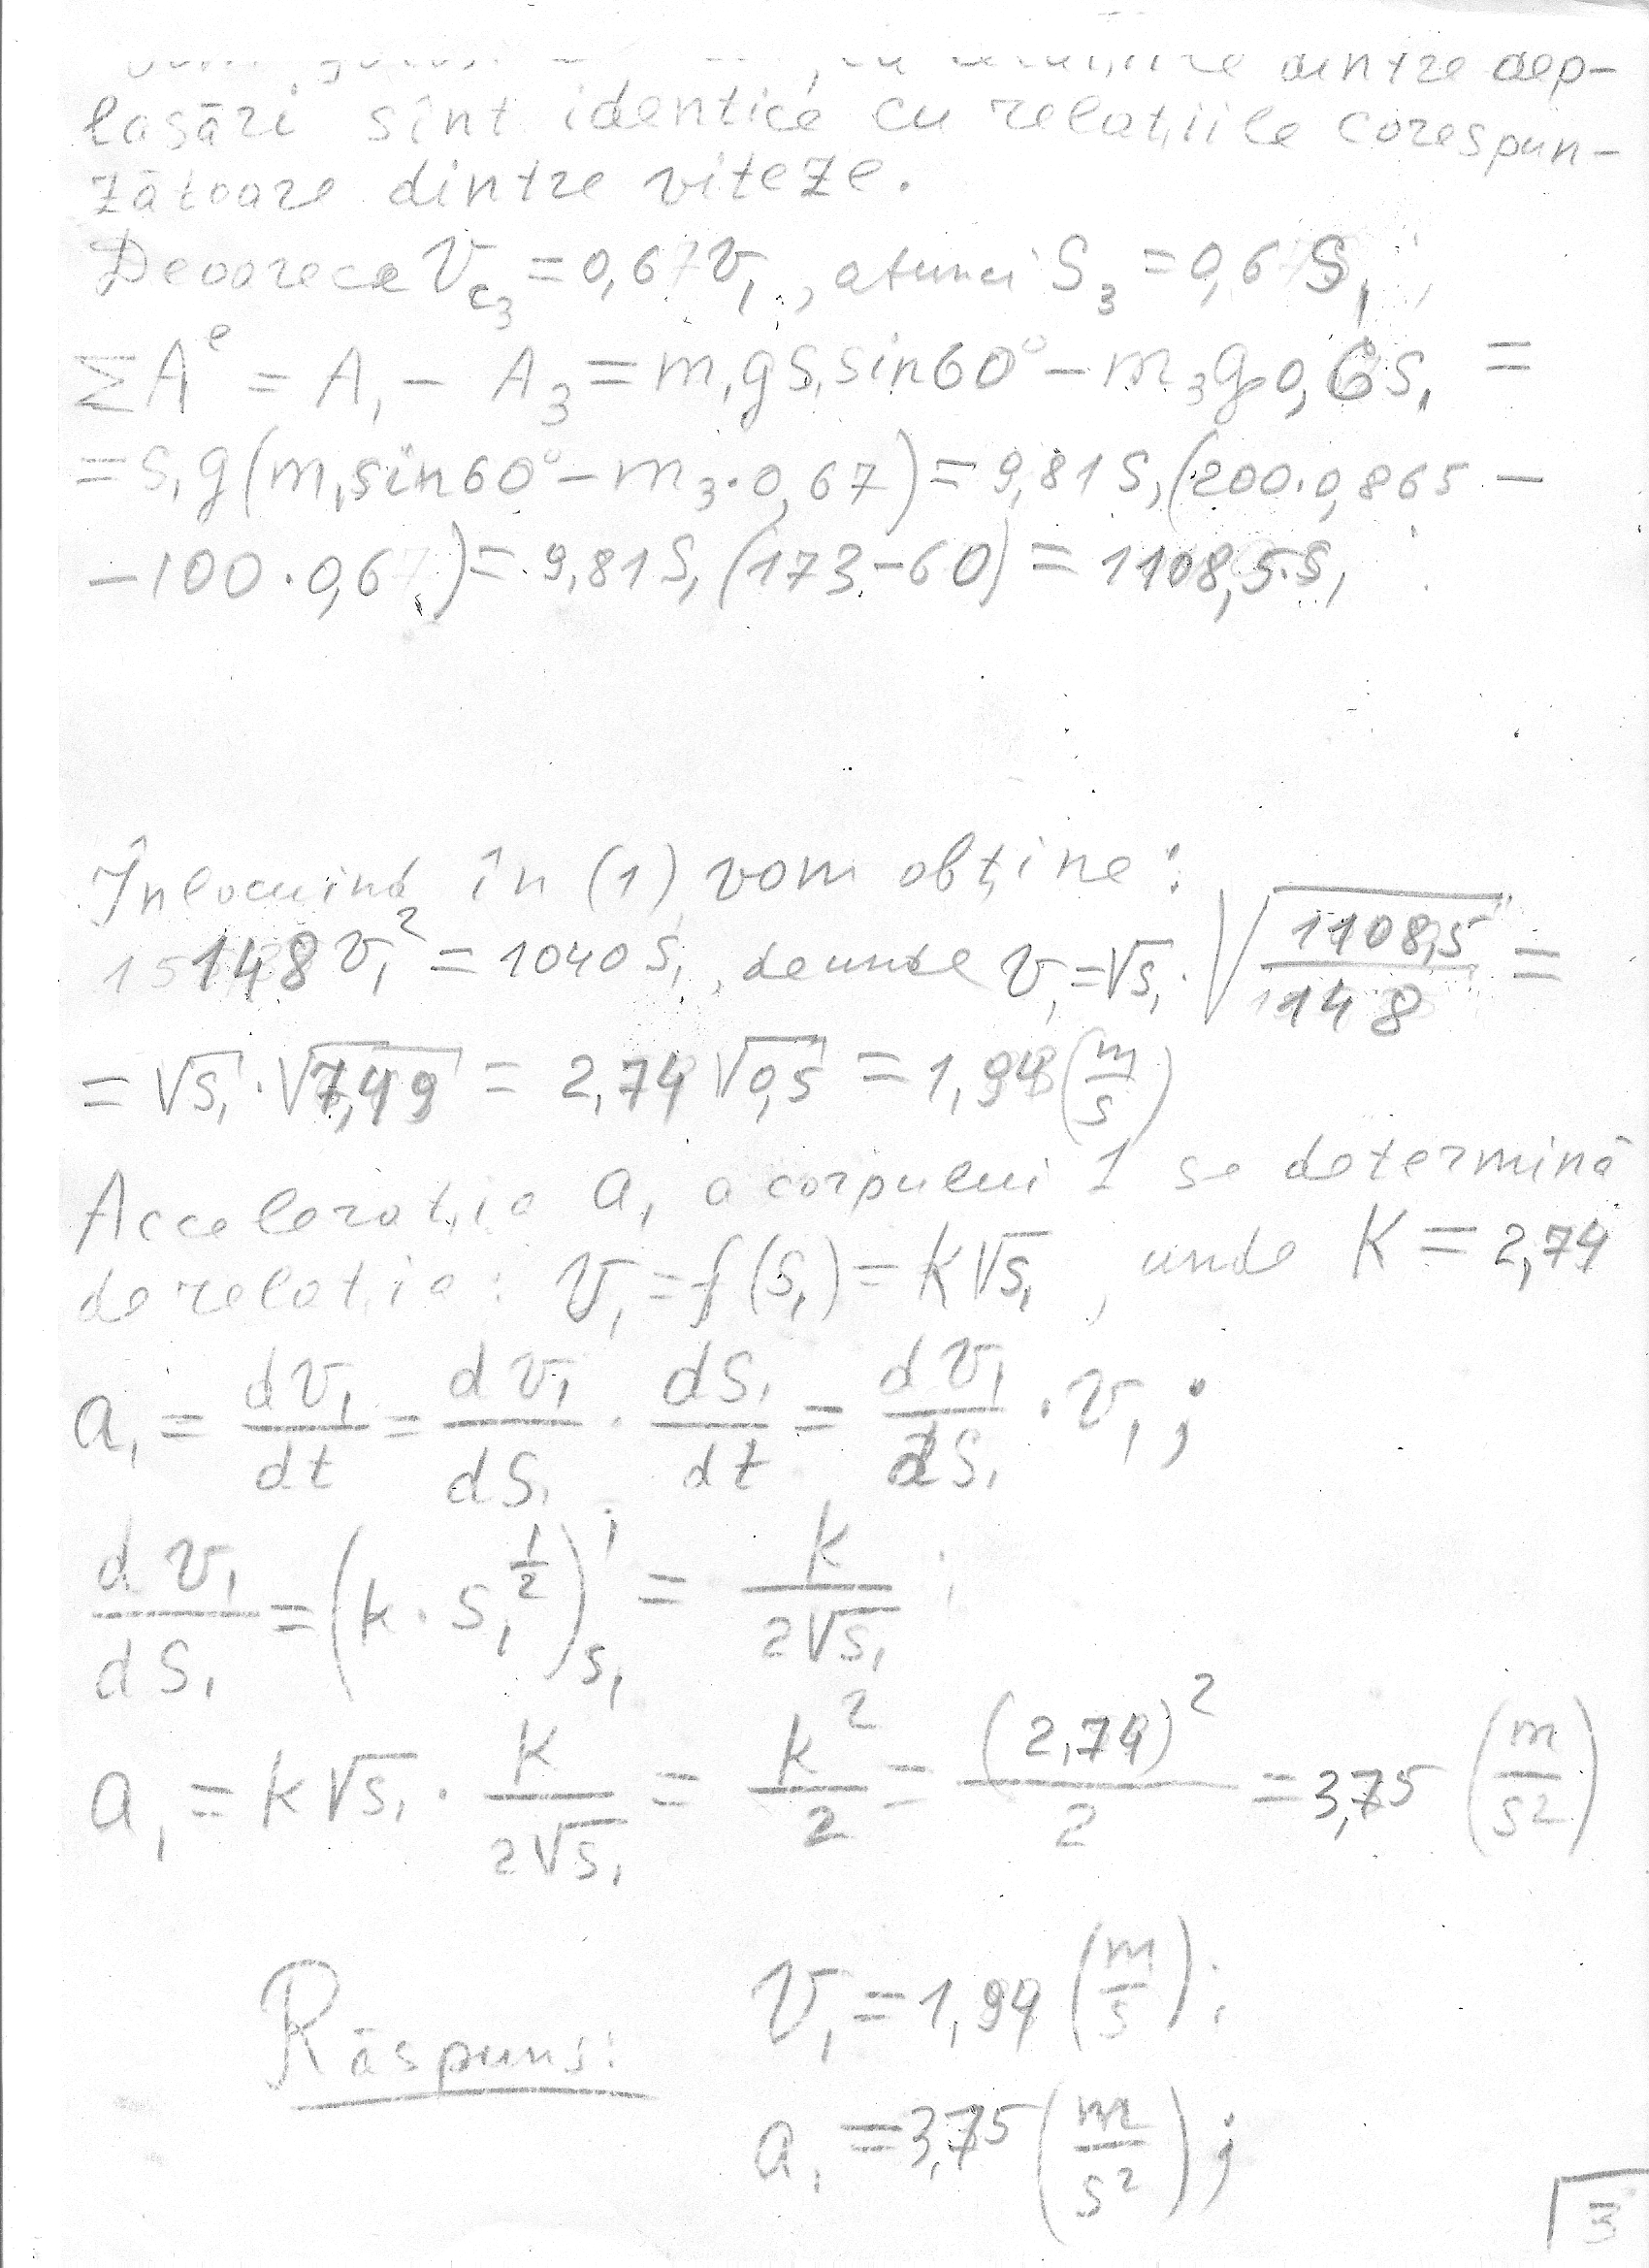 dintre dep-
lasări sînt identice cu relațiile corespun-
zătoare dintre viteze.
Deoarece V_c3 = 0,67 v₁, atunci S₃ = 0,6 S₁;
ΣAᵉ = A₁ - A₃ = m₁gS₁sin60° - m₃g·0,6S₁ =
= S₁g(m₁sin60° - m₃·0,67) = 9,81S₁(200·0,865 -
- 100·0,67) = 9,81S₁(173-60) = 1108,5·S₁
Înlocuind în (1) vom obține:
148v₁² = 1040S₁, de unde v₁ = √S₁·√(1108,5/148) =
= √S₁·√7,49 = 2,74√0,5 = 1,94 (m/s)
Accelerația a₁ a corpului 1 se determină
de relația: v₁ = f(S₁) = k√S₁, unde K = 2,74
a₁ = dv₁/dt = dv₁/dS₁ · dS₁/dt = dv₁/dS₁ · v₁;
dv₁/dS₁ = (k·S₁^(1/2))'_S₁ = k/(2√S₁);
a₁ = k√S₁ · k/(2√S₁) = k²/2 = (2,74)²/2 = 3,75 (m/s²)
Răspuns: v₁ = 1,94 (m/s);
a₁ = 3,75 (m/s²);
3